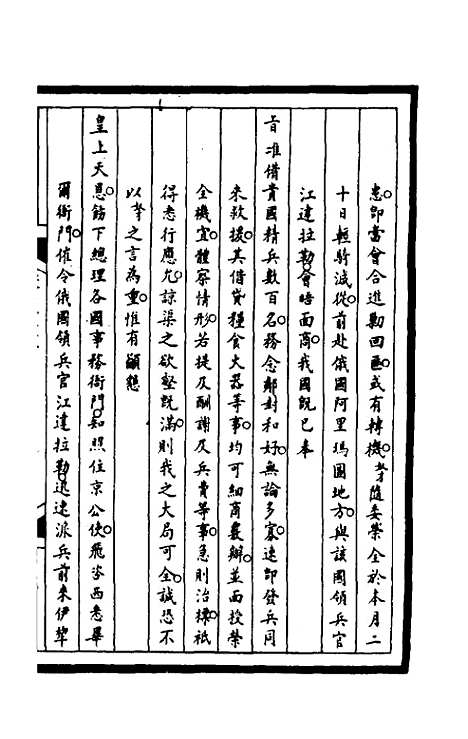 患即當會合進勦回匪或有轉機隨委榮全於本月二
十日輕騎減從前赴俄國阿里瑪圖地方與該國領兵官
江達拉勒會晤面商我國既已奉
旨准借貴國精兵數百名務念鄰封和好無論多寡速即發兵同
來救援其借貸糧食火器等事均可細商妥辦並面授榮
全機宜體察情形若提及酬謝及兵費等事急則治標祇
得悉行應允諒渠之欲壑既滿則我之大局可全誠恐不
以奴才之言為重惟有籲懇
皇上天恩飭下總理各國事務衙門知照住京公使飛咨西悉畢
爾衙門催令俄國領兵官江達拉勒迅速派兵前來伊犂